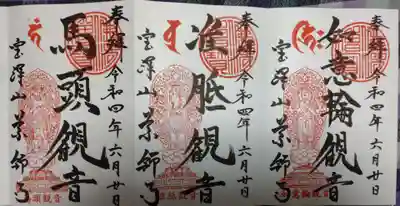 奉拝 令和四年六月廿日
如意輪観音
宝澤山 薬師寺
奉拝 令和四年六月廿日
准胝観音
宝澤山 薬師寺
奉拝 令和四年六月廿日
馬頭観音
宝澤山 薬師寺